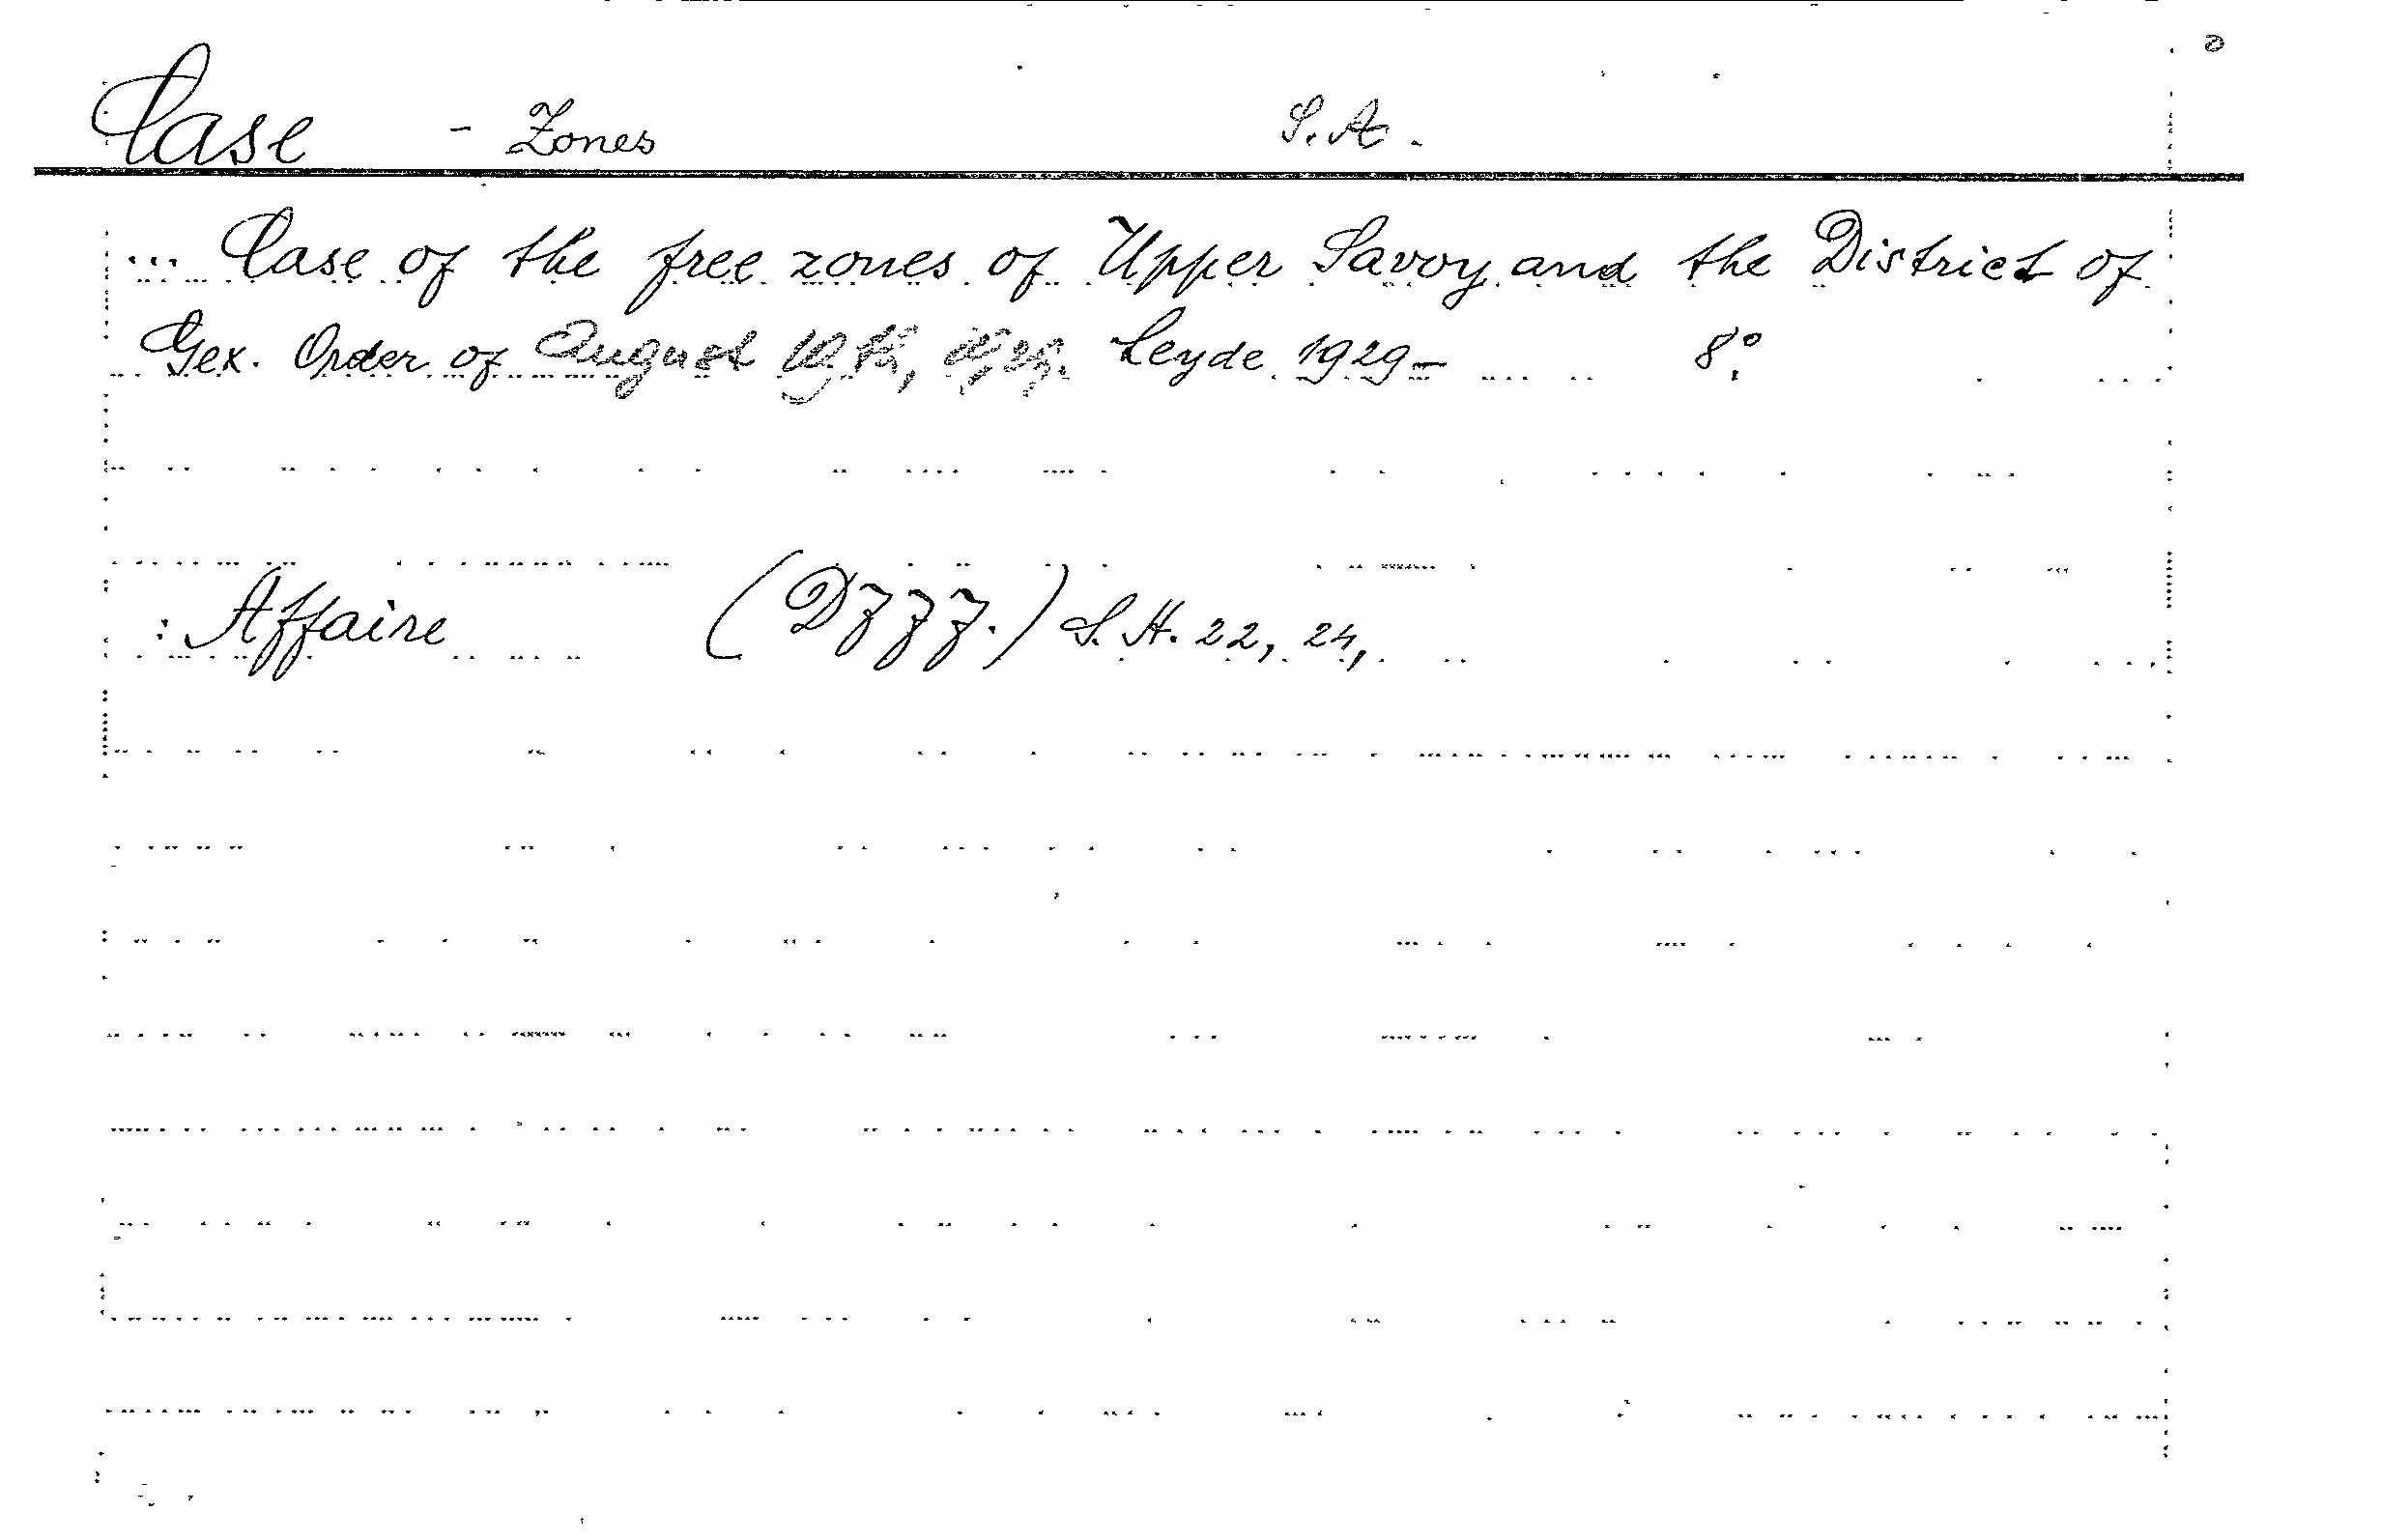 Case - Zones S. A.
... Case of the free zones of Upper Savoy and the District of
Gex. Order of August 19th, 1929. Leyde 1929- 8°.
: Affaire (D777.) S. A. 22, 24,